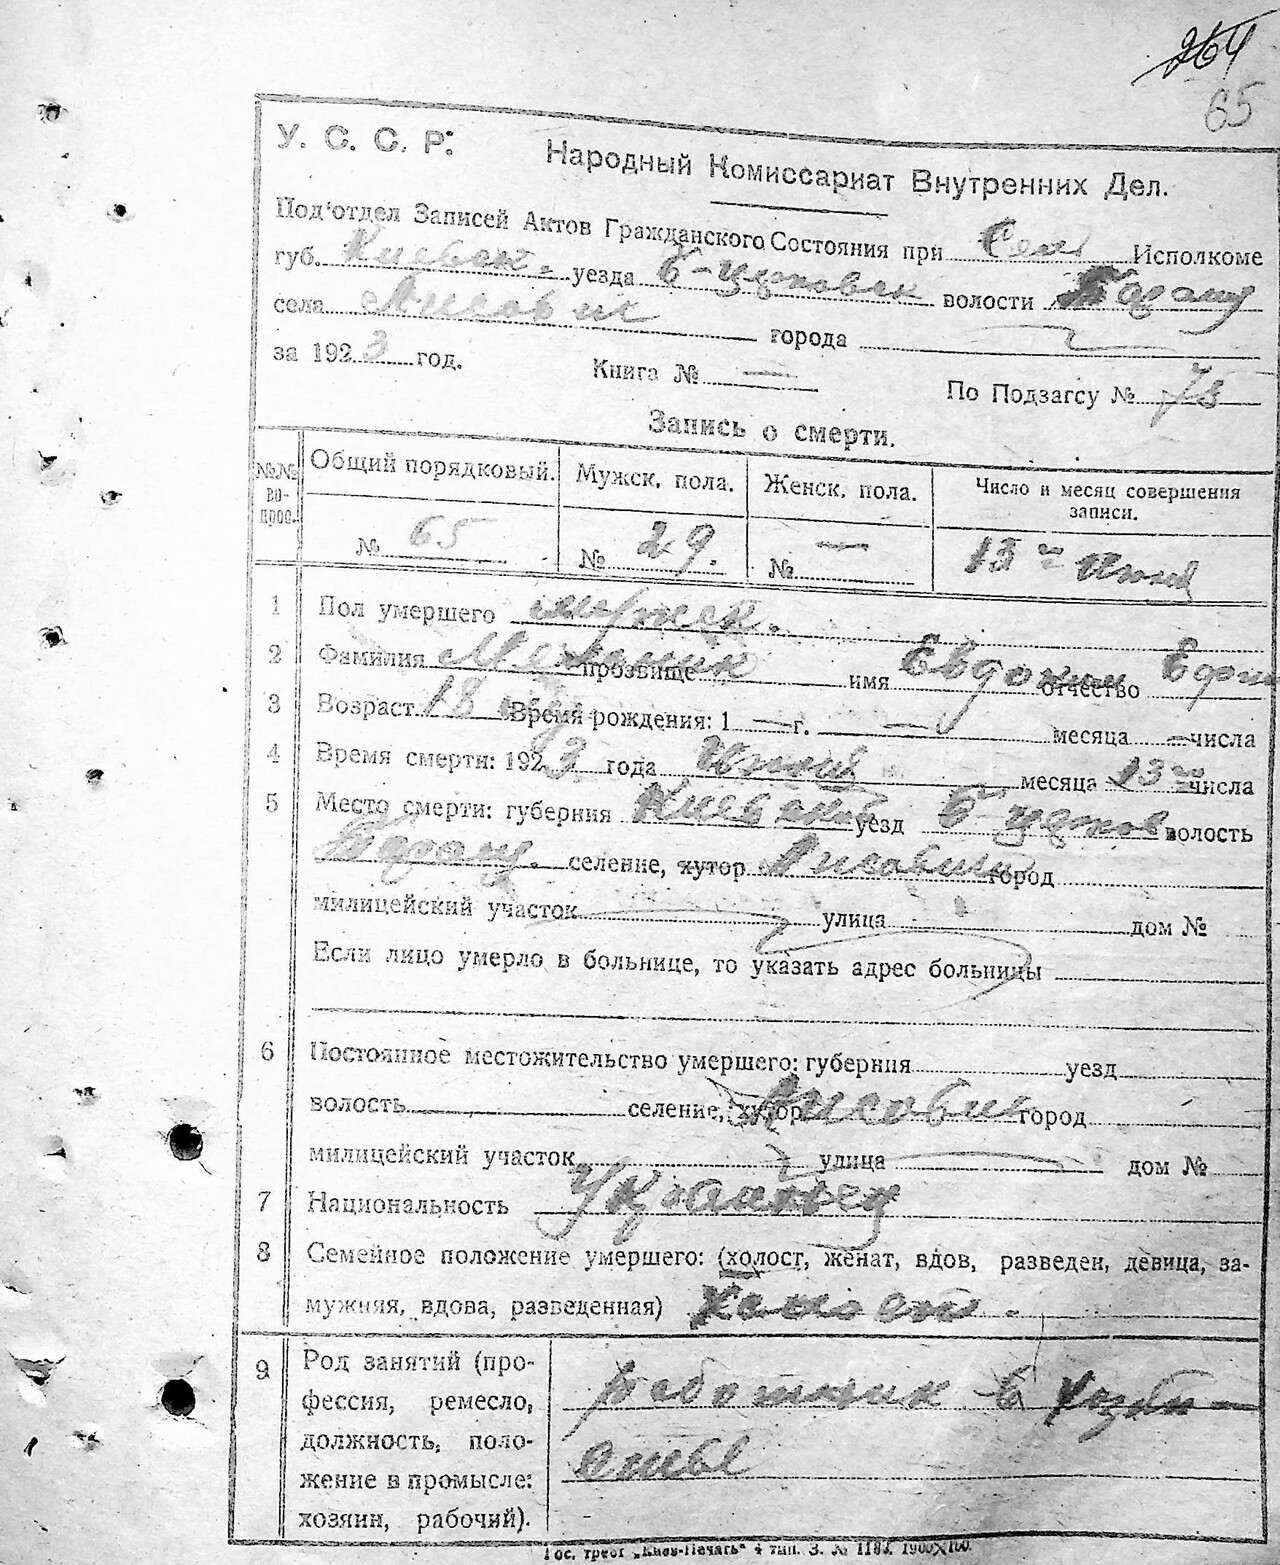 264
65
У. С. С. Р.
Народный Комиссариат Внутренних Дел.
Под'отдел Записей Актов Гражданского Состояния при Сель Исполкоме
губ. Киевск. уезда Б-Церковск волости Таращ
села Лисович города
за 1923 год. Книга № — По Подзагсу № 75
Запись о смерти.
№№ во- прос. Общий порядковый. Мужск. пола. Женск. пола. Число и месяц совершения записи.
№ 65 № 29. № — 13 Июня
1 Пол умершего мужск.
2 Фамилия прозвище имя Евдоким отчество Ефим
3 Возраст 18 Время рождения: 1 — г. — месяца — числа
4 Время смерти: 1923 года Июня месяца 13 числа
5 Место смерти: губерния Киевская уезд Б-Церков волость
Таращ. селение, хутор Лисович город
милицейский участок улица дом №
Если лицо умерло в больнице, то указать адрес больницы
6 Постоянное местожительство умершего: губерния уезд
волость селение, хутор Лисович город
милицейский участок улица дом №
7 Национальность Украинец
8 Семейное положение умершего: (холост, женат, вдов, разведен, девица, за-
мужняя, вдова, разведенная) Холост.
9 Род занятий (про-
фессия, ремесло,
должность, поло-
жение в промысле:
хозяин, рабочий).
работник в
Гос. трест „Киев-Печать“ 4 тип. З. №